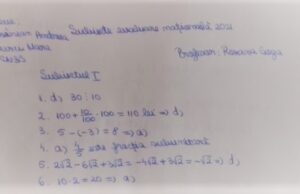 Andreea Subiecte evaluare națională 2021
Maria
Profesor: Roxana
Subiectul I
1. d) 30 : 10
2. 100 + 10/100 · 100 = 110 lei => d)
3. 5 - (-3) = 8 => a)
4. a) 4/5 este fracția subunitară
5. 2√2 - 6√2 + 3√2 = -4√2 + 3√2 = -√2 => d)
6. 10 · 2 = 20 => a)